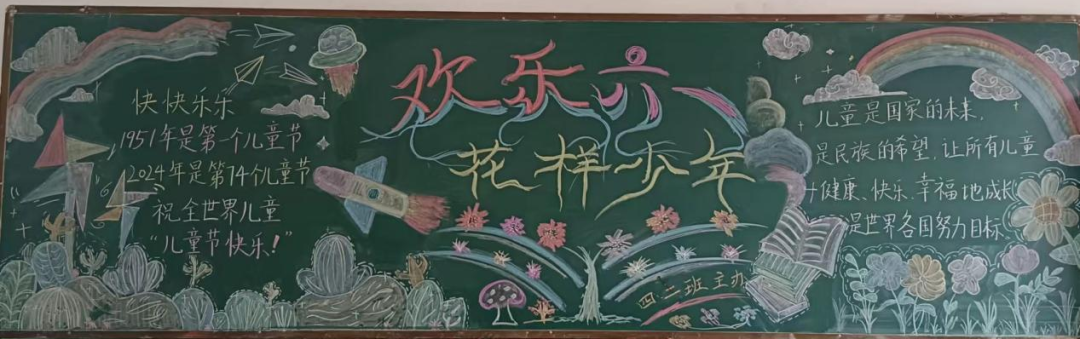 快快乐乐
1951年是第一个儿童节
2024年是第74个儿童节
祝全世界儿童
“儿童节快乐!”
欢乐六一
花样少年
四二班主办
儿童是国家的未来,
是民族的希望,让所有儿童
健康、快乐、幸福地成长
是世界各国努力目标